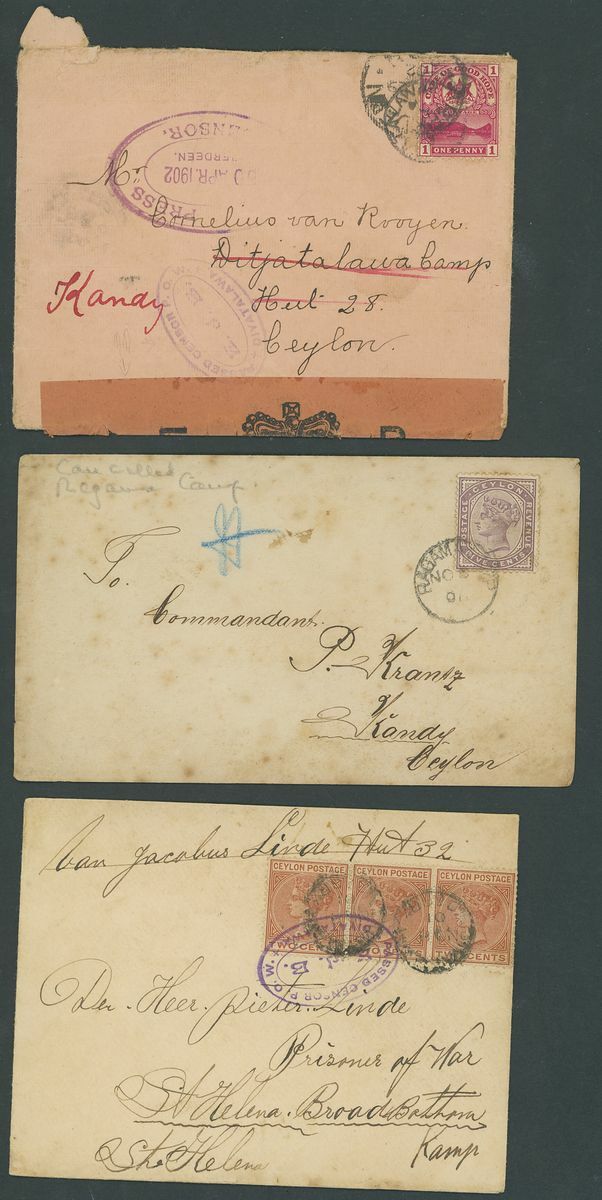 1 CAPE OF GOOD HOPE 1
1 ONE PENNY 1
PRESS CENSOR.
APR.1902
ABERDEEN.
Mr
Cornelius van Rooyen.
Ditjatalawa Camp
Kandy
Hut 28.
Ceylon.
PASSED CENSOR P.O.W. DIYATALAWA
E R
Cancelled
Ragama Camp.
POSTAGE CEYLON REVENUE
FIVE CENTS
RAGAM
NO
To.
Commandant.
P. Krantz
Kandy
Ceylon
Van Jacobus Linde Hut 32
CEYLON POSTAGE CEYLON POSTAGE CEYLON POSTAGE
TWO CENTS
PASSED CENSOR P.O.W. DIYATALAWA
Den. Heer. Pieter. Linde
Prisoner of War
St Helena. Broad Bottom
Kamp
St. Helena